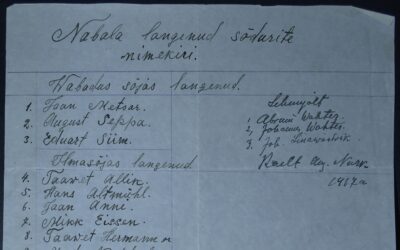 Nabala langenud sõdurite
nimekiri.
Wabadus sõjas langenud.
1. Jaan Metsar.
2. August Seppa.
3. Eduart Siim.
Ilmasõjas langenud
4. Taawet Allik.
5. Hans Altmühl.
6. Jaan Anni.
7. Mikk Eissen.
8. Taawet Hermann
1. Abram Wahter.
2. Johannes Wahter.
3. Joh.